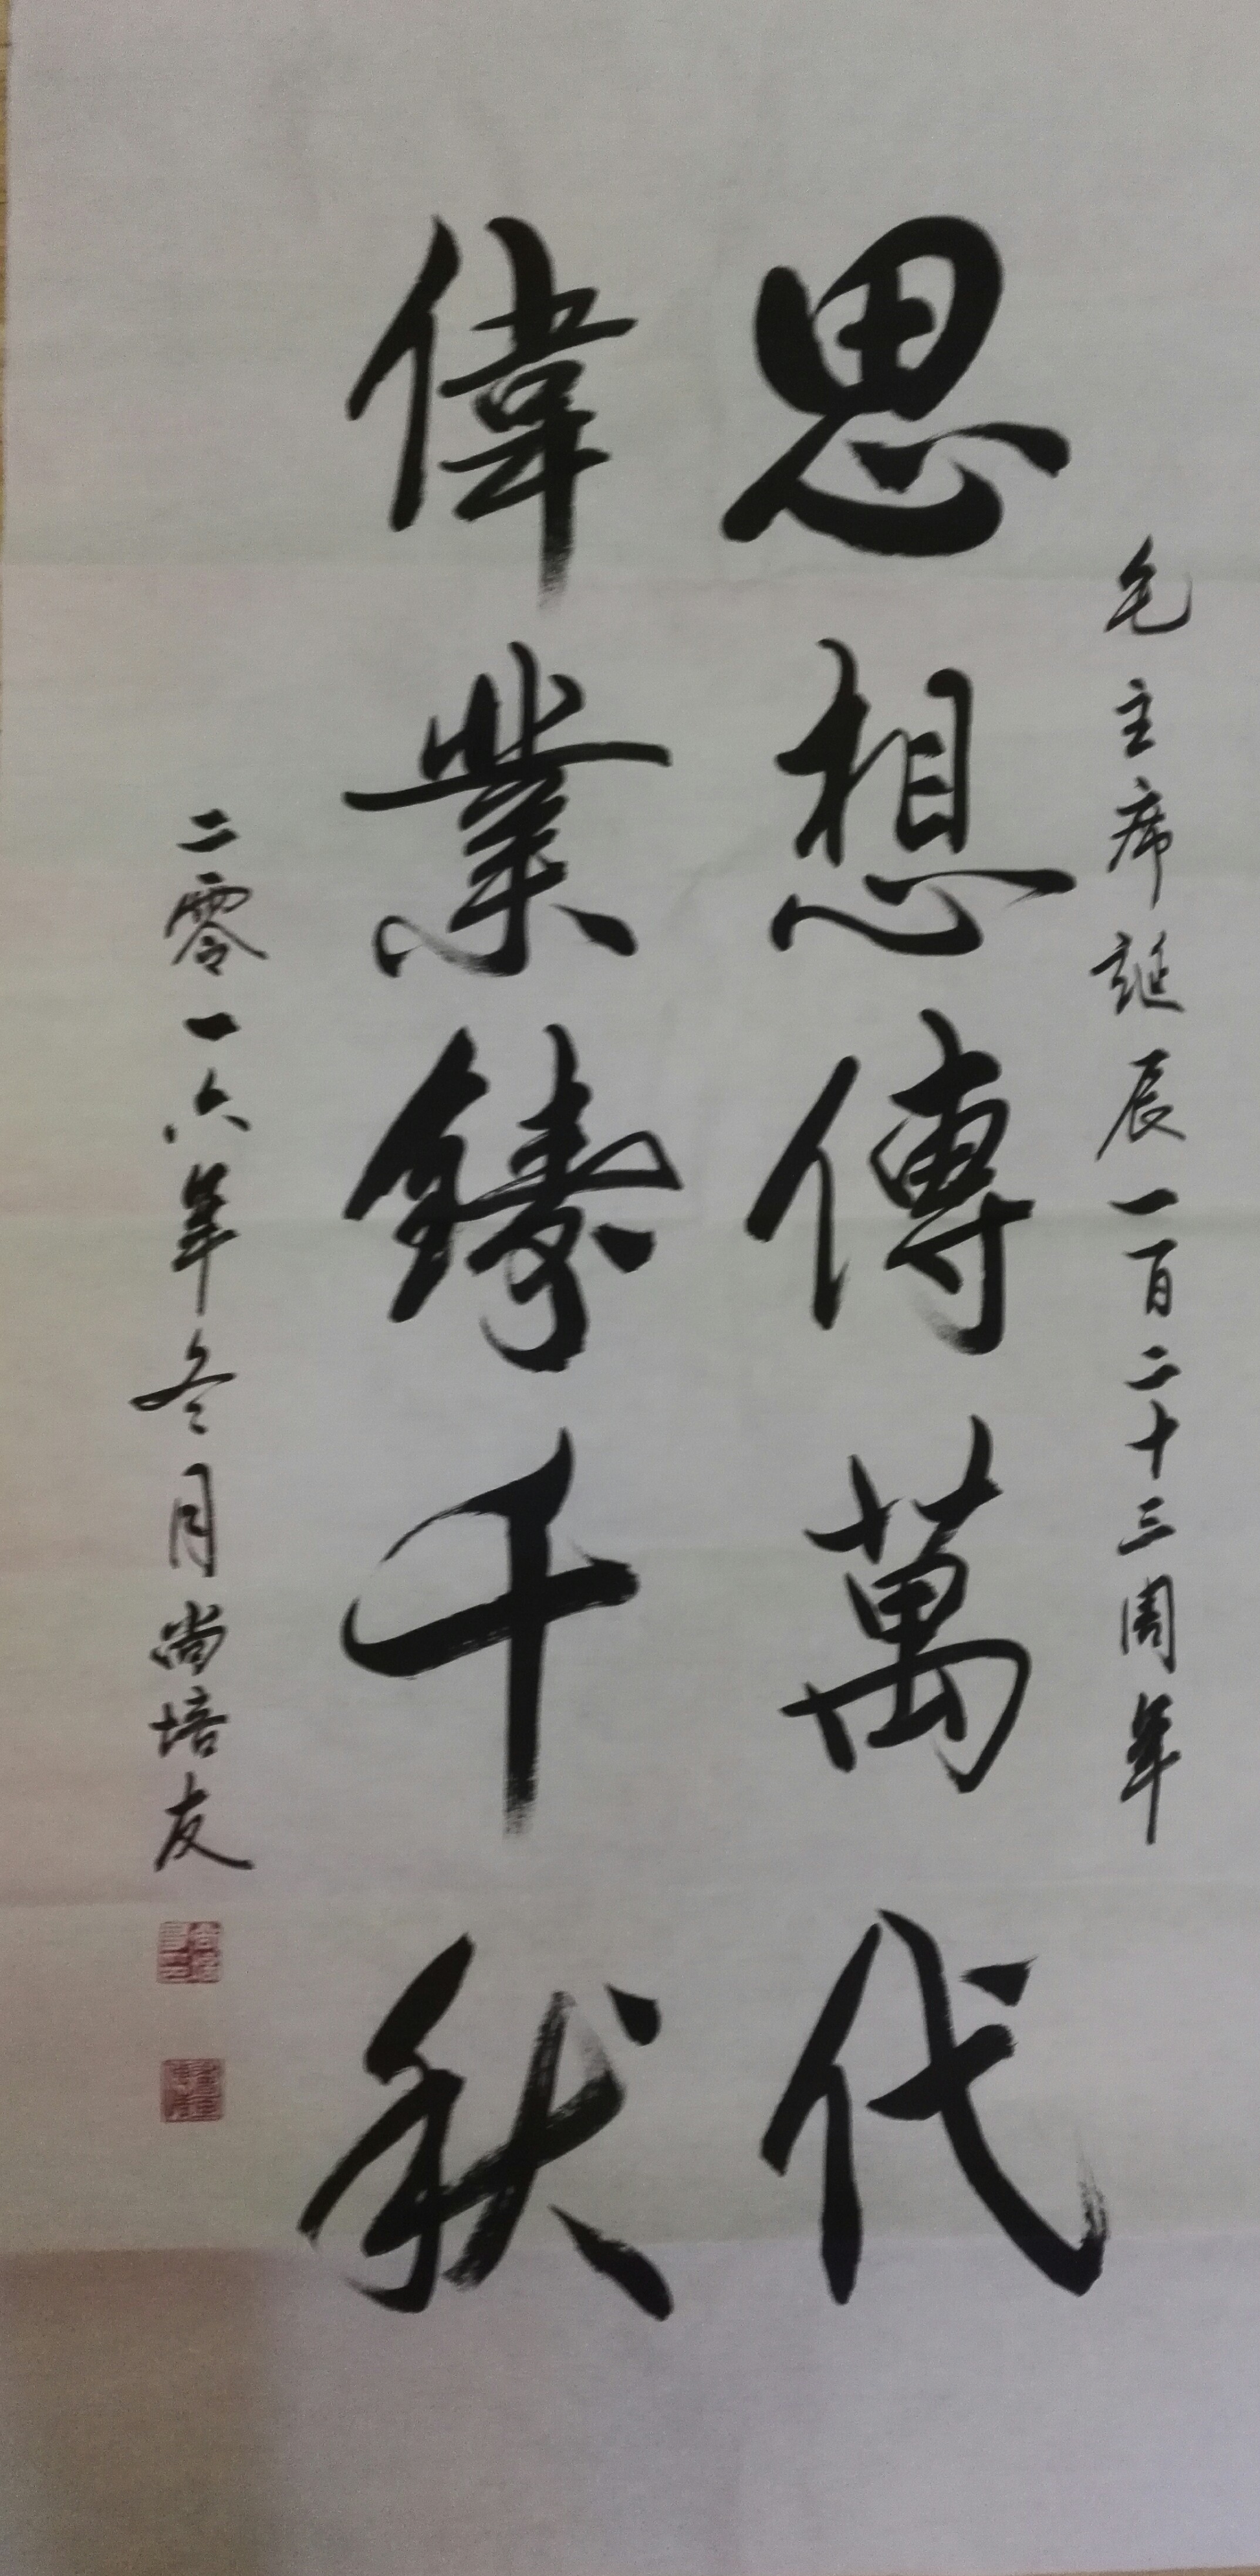 毛主席誕辰一百二十三周年
思想傳萬代
偉業鑄千秋
二零一六年冬月尚培友